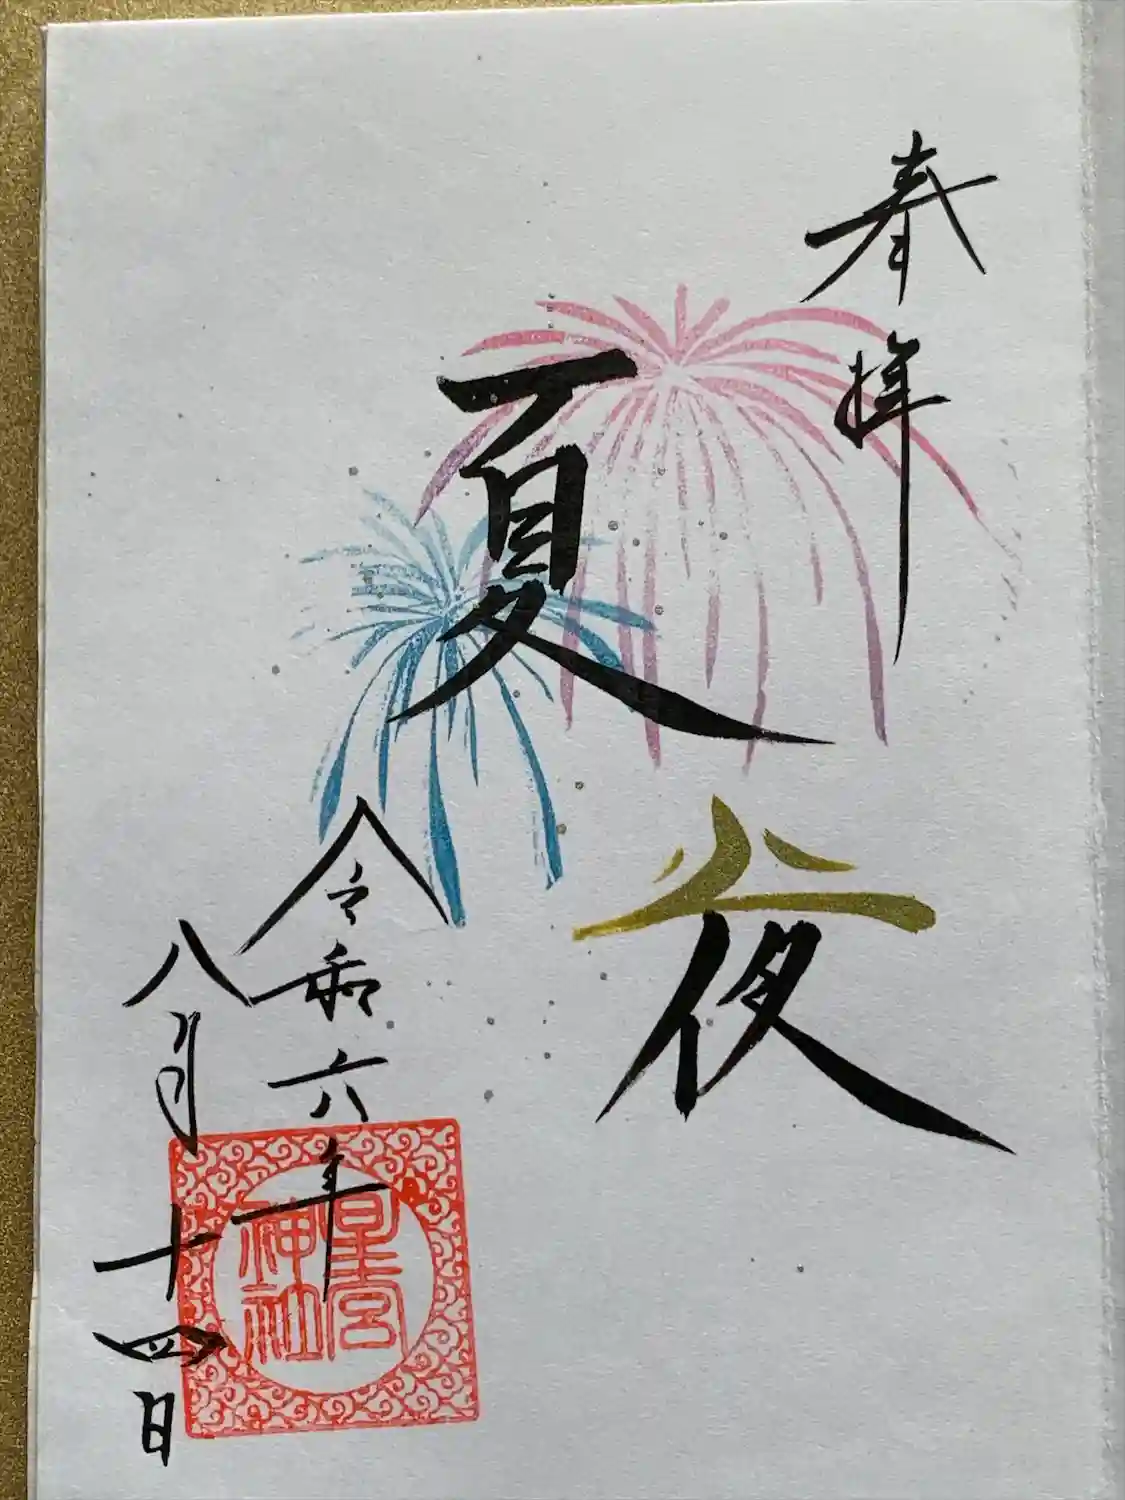 奉拝
夏
夜
令和六年
八月十四日
星宮
神社